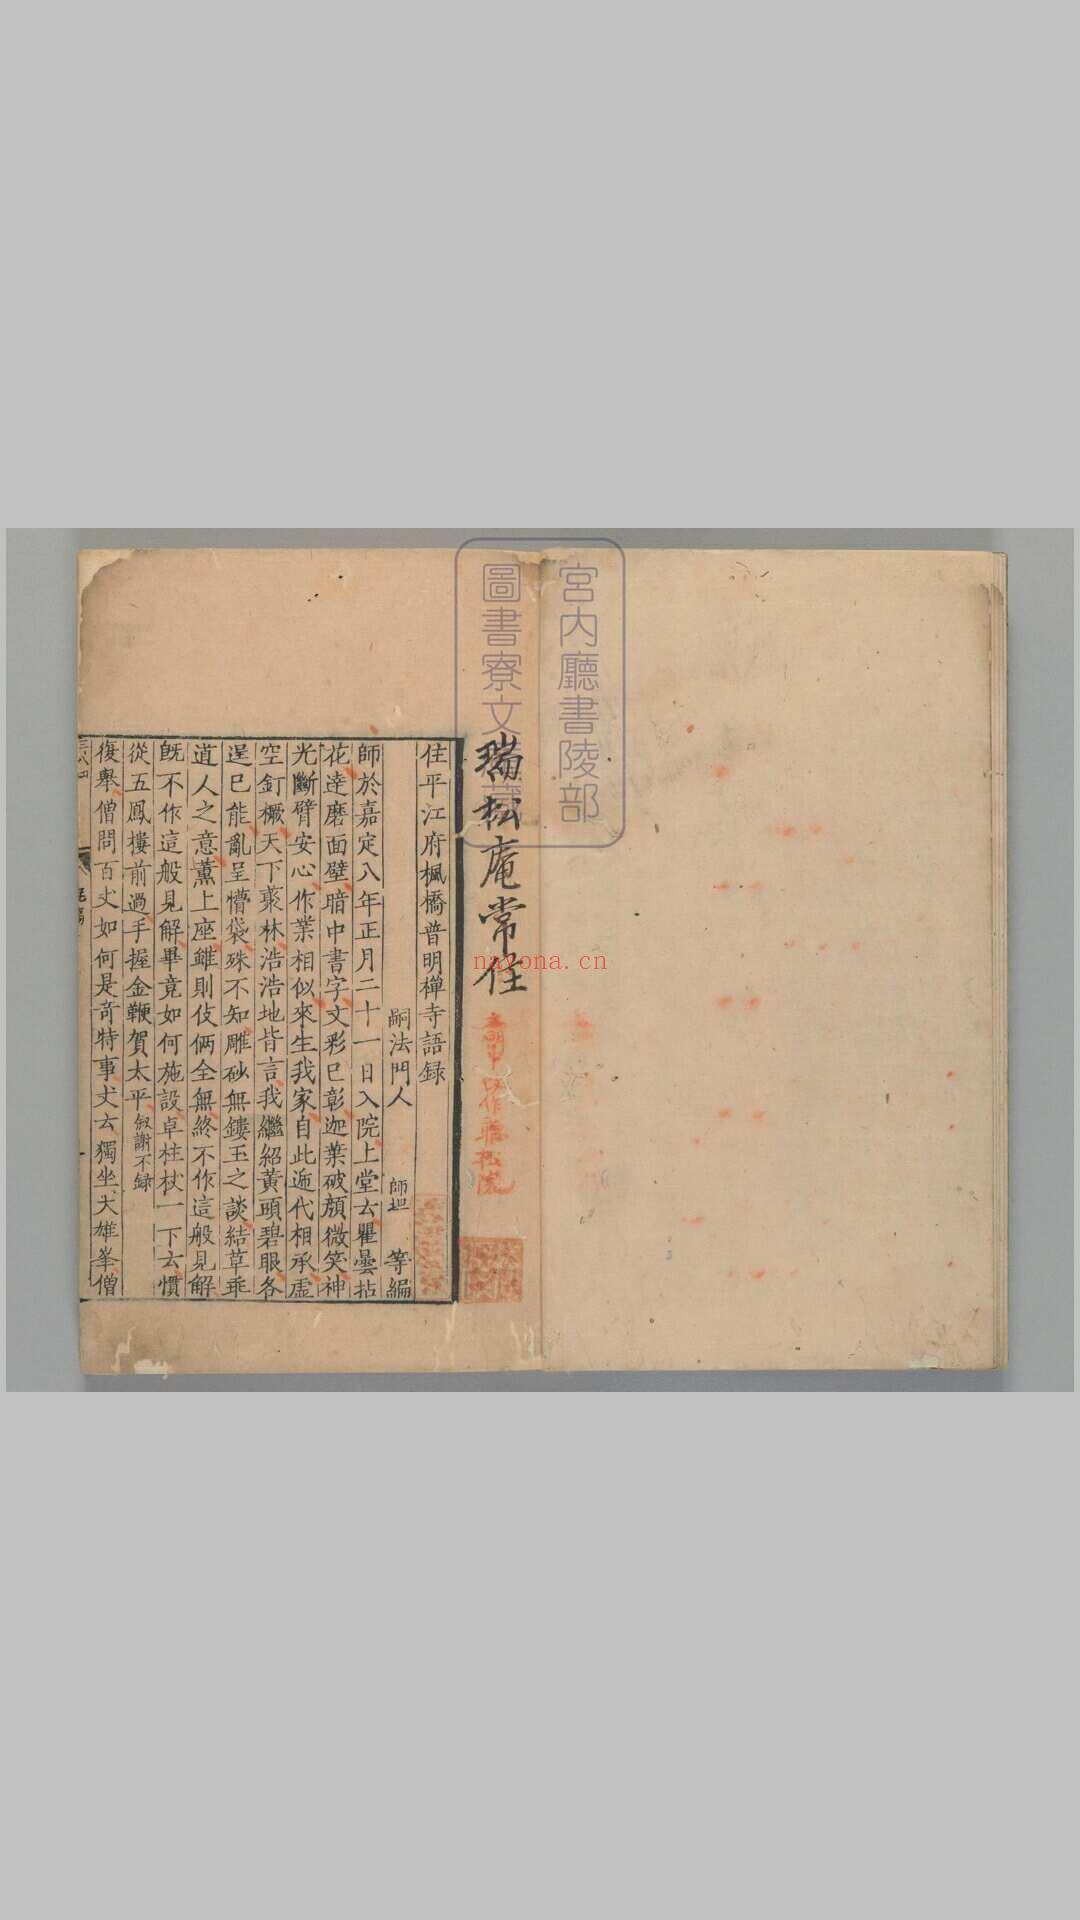 宮內廳書陵部
圖書寮文
瑞松庵常住
nayona.cn
住平江府楓橋普明禪寺語録
嗣法門人 師坦 等編
師於嘉定八年正月二十一日入院上堂云瞿曇拈
花達磨面壁暗中書字文彩已彰迦葉破顔微笑神
光斷臂安心作業相似來生我家自此逓代相承虚
空釘橛天下叢林浩浩地皆言我繼紹黄頭碧眼各
逞已能亂呈懵袋殊不知雕砂無鏤玉之談結草乖
道人之意薰上座雖則伎倆全無終不作這般見解
旣不作這般見解畢竟如何施設卓柱杖一下云慣
從五鳳樓前過手握金鞭賀太平叙謝不録
復舉僧問百丈如何是竒特事丈云獨坐大雄峯僧